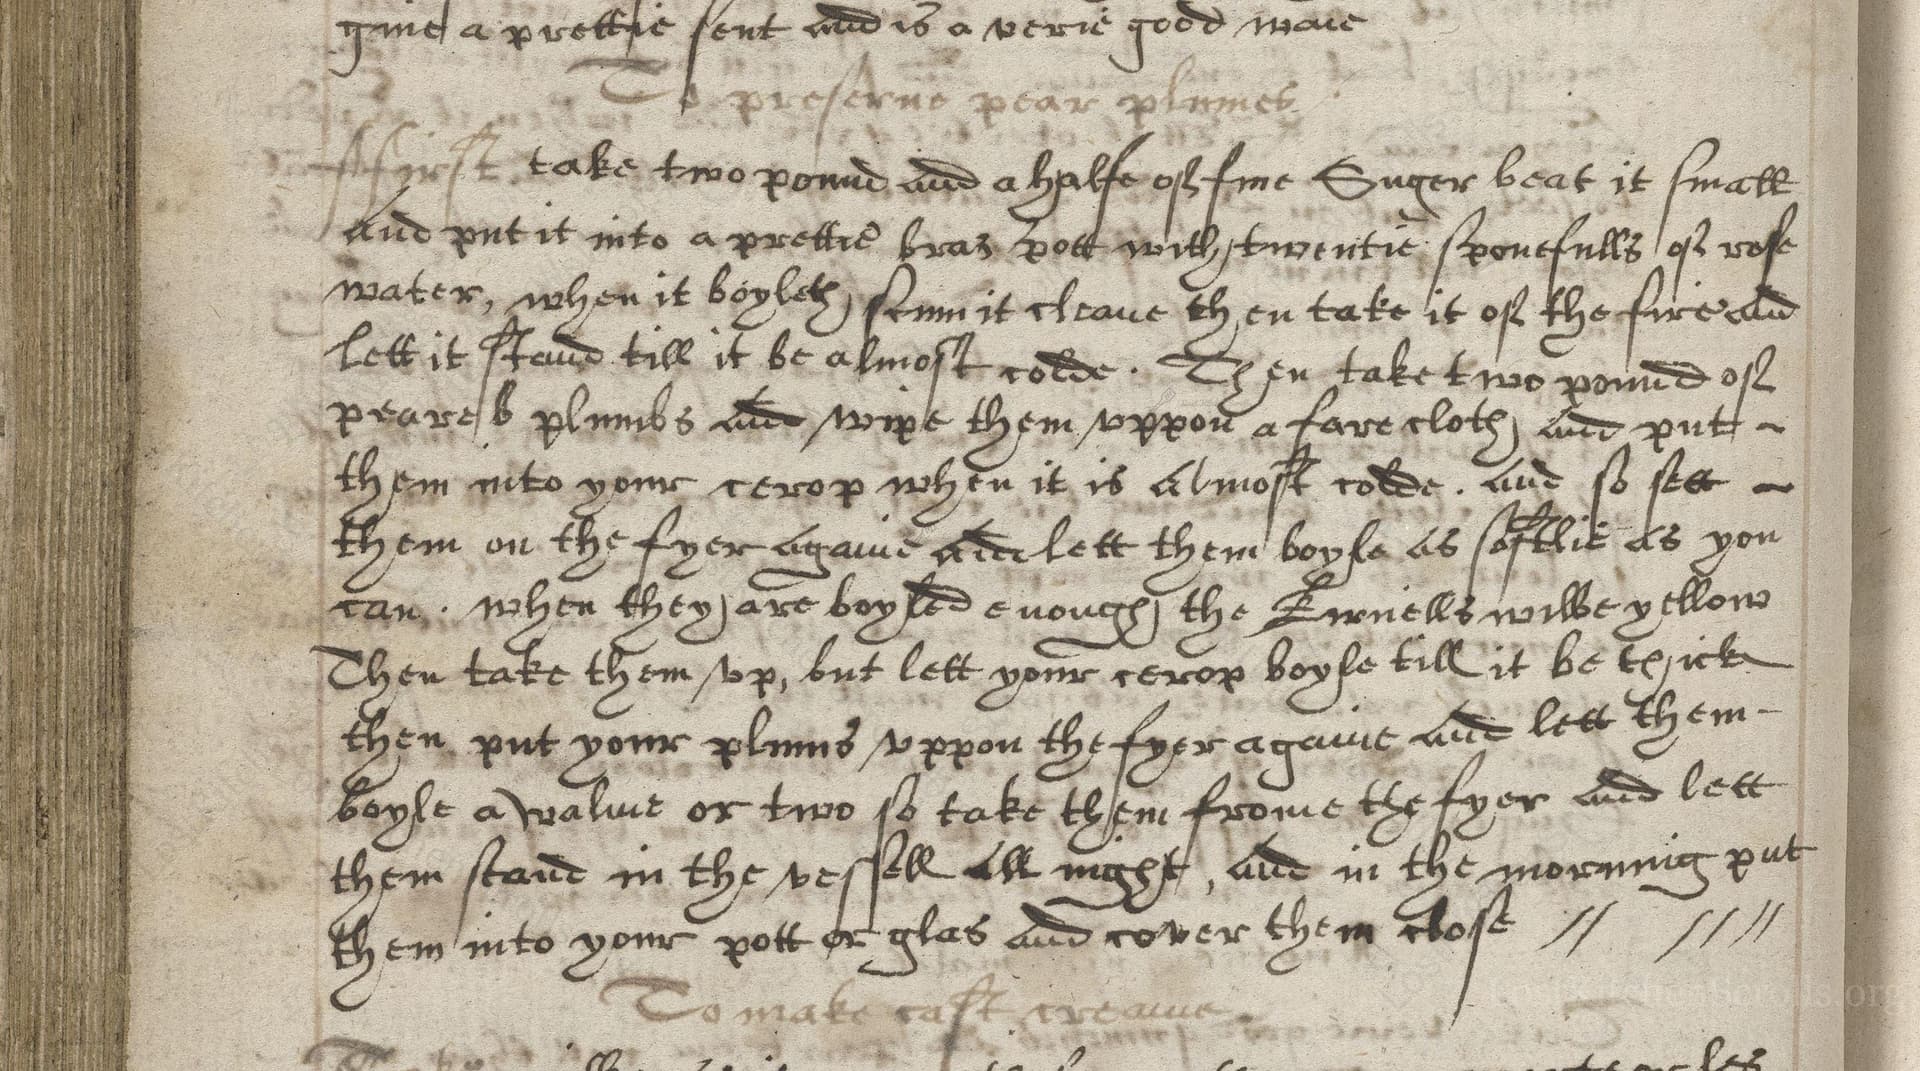 giue a prettie sent and is a verie good waie
To preserue pear plumes
ffirst take two pound and a halfe of fine Suger beat it small
and put it into a prettie bras pott with twentie sponefulls of rose
water, when it boyleth scum it cleane then take it of the fire and
lett it stand till it be almost colde. Then take two pound of
peare plumbs and wipe them vppon a fare cloth and put ~
them into your cerop when it is almost colde. and so sett ~
them on the fyer againe and lett them boyle as softlie as you
can. when they are boyled enough the Kirnells wilbe yellow
Then take them vp, but lett your cerop boyle till it be thick
then put your plums vppon the fyer againe and lett them -
boyle a walme or two so take them frome the fyer and lett
them stand in the vessell all night, and in the morning put
them into your pott or glas and cover them close // ////
To make cast creame